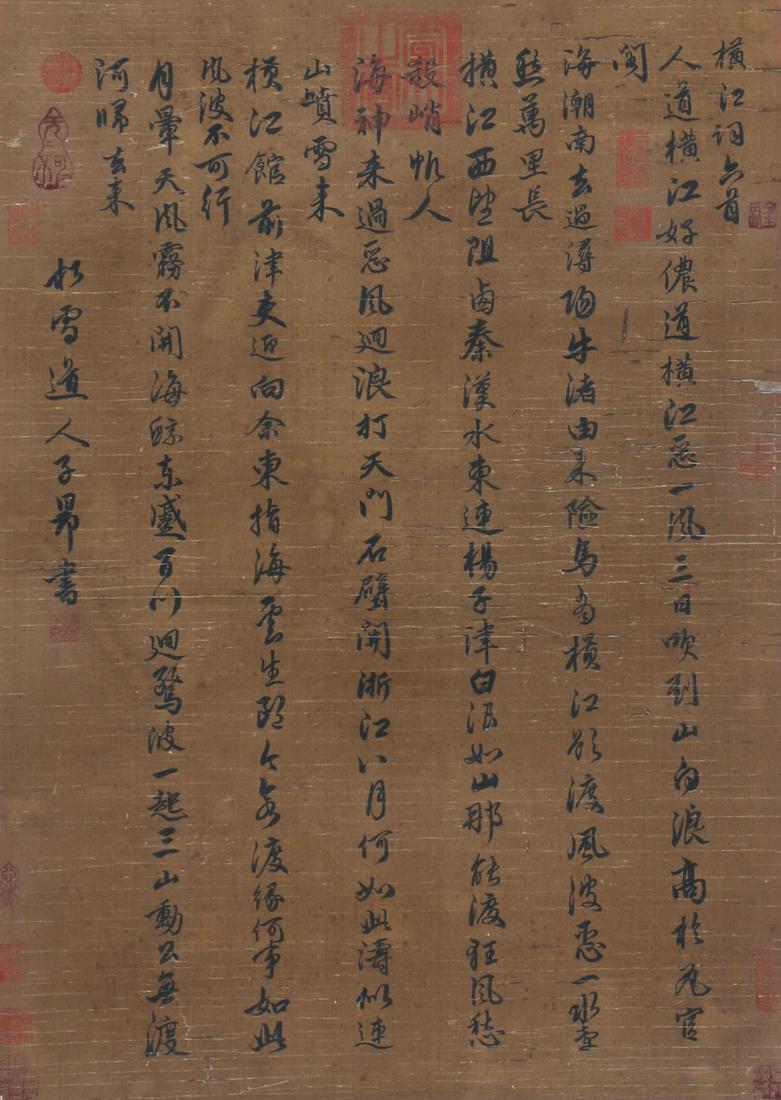 橫江詞六首
人道橫江好儂道橫江惡一風三日吹到山白浪高於瓦官
閣
海潮南去過潯陽牛渚由来險馬當橫江欲渡風波惡一水牽
愁萬里長
橫江西望阻鹵秦漢水東連楊子津白浪如山那能渡狂風愁
殺峭帆人
海神来過惡風迴浪打天門石壁開浙江八月何如此濤似連
山噴雪来
橫江館前津吏迎向余東指海雲生郎今欲渡緣何事如此
風波不可行
月暈天風霧不開海鯨東蹙百川迴驚波一起三山動公無渡
河歸去来
松雪道人子昂書